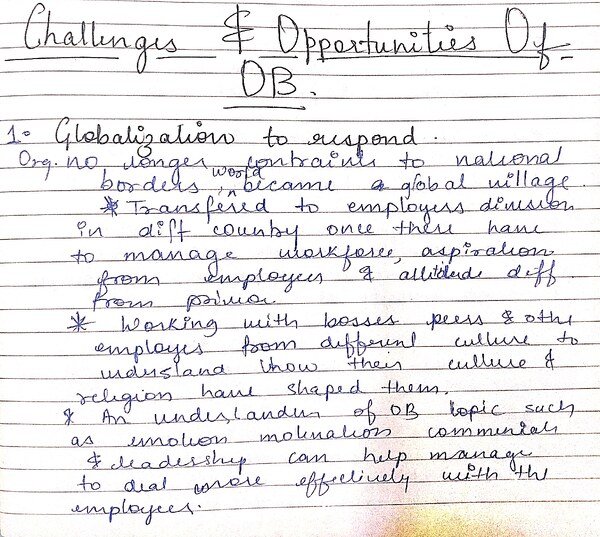 Challenges & Opportunities Of
OB.
1. Globalization to respond.
Org. no longer contraints to national
borders, world became a global village.
* Transfered to employess division
in diff county once there have
to manage workforce, aspiration
from employees & attitude diff
from
* Working with bosses peers & othe
employes from different culture to
understand how their culture &
religion have shaped them.
* An understanden of OB topic such
as emotion motination
& leadership can help manage
to deal more effectively with the
employees.